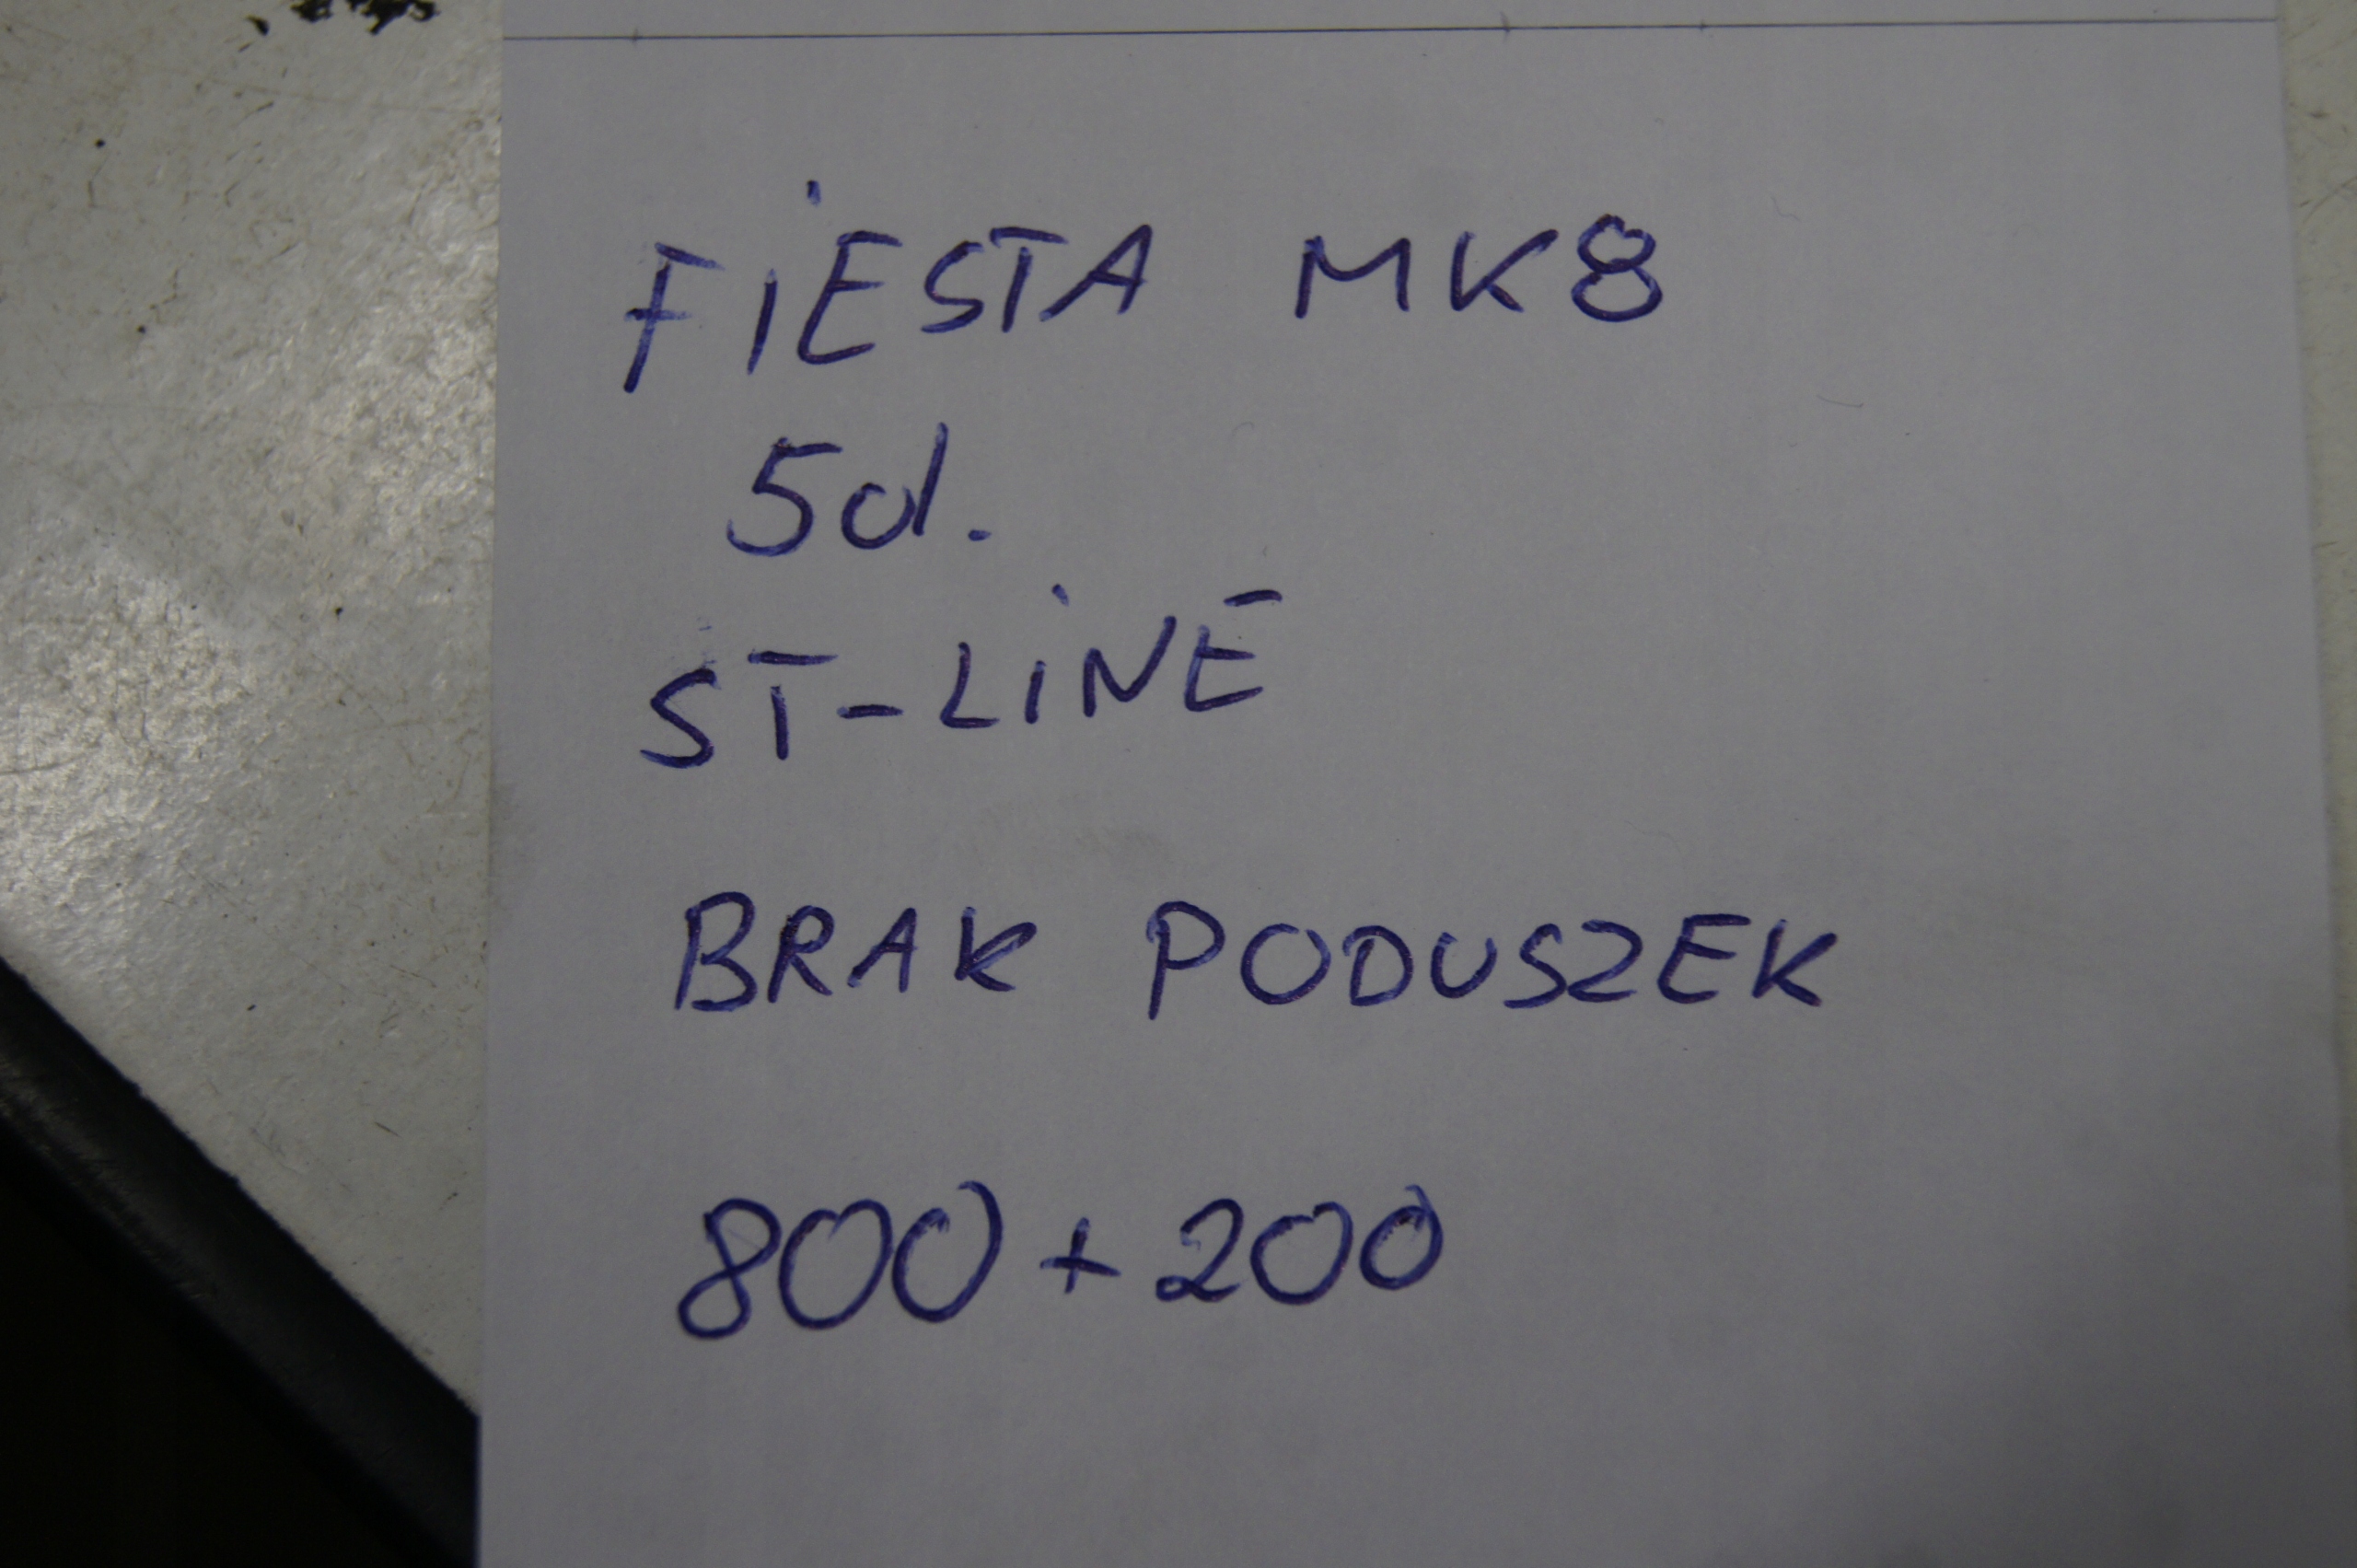 FiESTA MK8
5d.
ST-LiNE
BRAK PODUSZEK
800 + 200